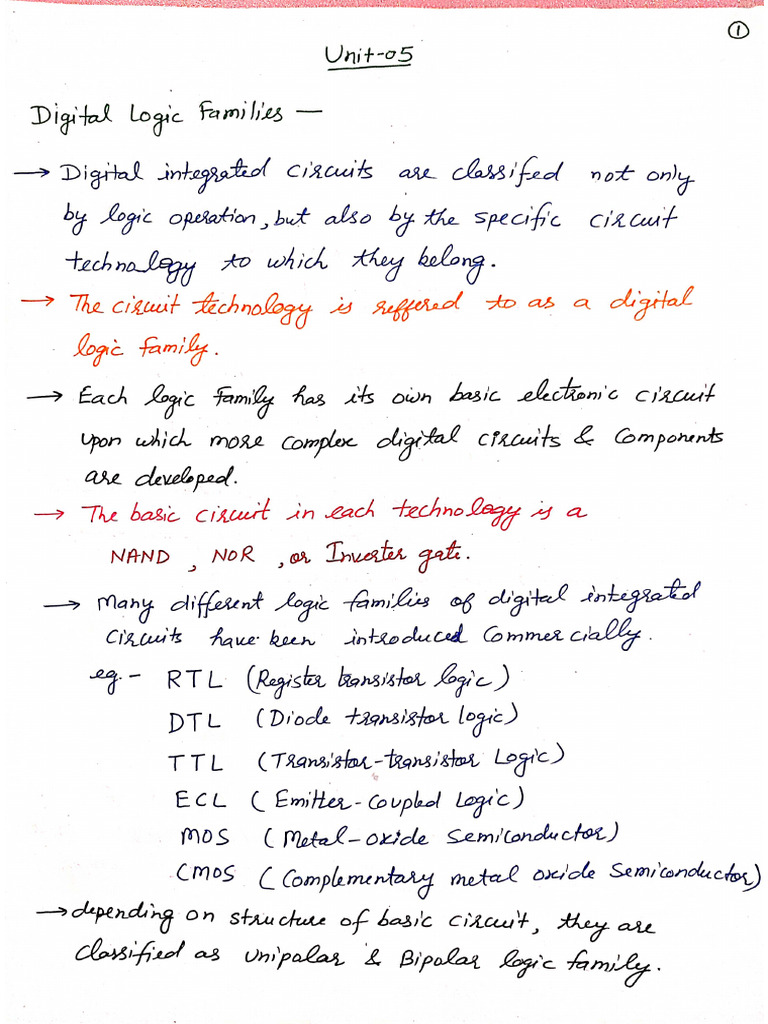 1
Unit-05
Digital Logic Families —
→ Digital integrated circuits are classifed not only
by logic operation, but also by the specific circuit
technology to which they belong.
→ The circuit technology is reffered to as a digital
logic family.
→ Each logic family has its own basic electronic circuit
upon which more complex digital circuits & components
are developed.
→ The basic circuit in each technology is a
NAND, NOR, or Inverter gate.
→ Many different logic families of digital integrated
circuits have been introduced commercially.
eg. - RTL (Register transistor logic)
DTL (Diode transistor logic)
TTL (Transistor-transistor Logic)
ECL (Emitter-Coupled Logic)
MOS (Metal-oxide Semiconductor)
CMOS (Complementary metal oxide Semiconductor)
→ depending on structure of basic circuit, they are
classified as unipolar & Bipolar logic family.